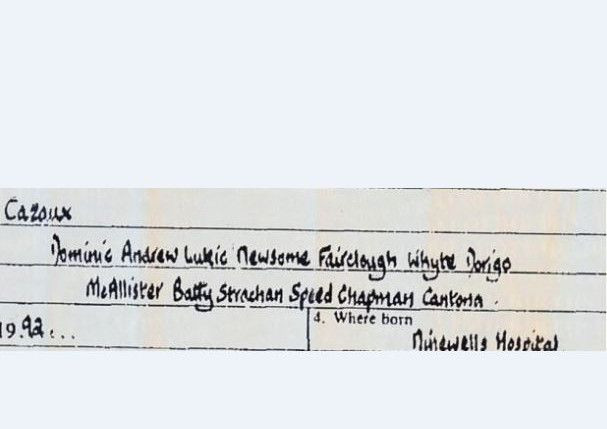 Cazaux
Dominic Andrew Lukic Newsome Fairclough Whyte Dorigo
McAllister Batty Strachan Speed Chapman Cantona.
19.92...
4. Where born
Ninewells Hospital